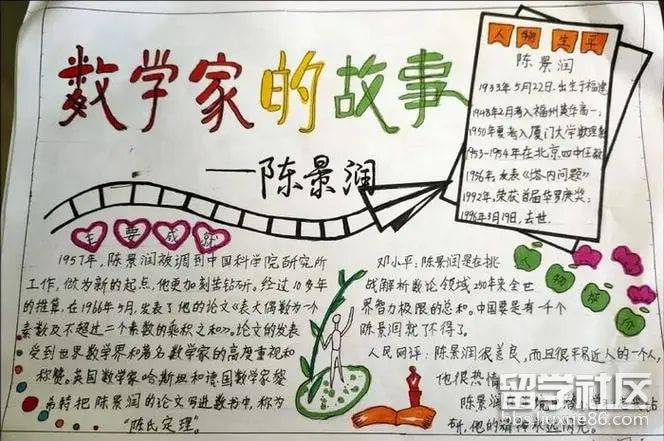 数学家的故事
——陈景润
人物生平
陈景润
1933年5月22日.出生于福建
1948年2月考入福州英华高一;
1950年夏考入厦门大学数理系
1953-1954年在北京四中任教
1956年,发表《塔内问题》
1992年,荣获首届华罗庚奖;
1996年3月19日,去世.
主要成就
1957年,陈景润被调到中国科学院研究所
工作,做为新的起点,他更加刻苦钻研。经过10多年
的推算,在1966年5月,发表了他的论文《表大偶数为一个
素数及不超过二个素数的乘积之和》。论文的发表
受到世界数学界和著名数学家的高度重视和
称赞。英国数学家哈斯坦和德国数学家黎
希特把陈景润的论文写进数书中,称为
“陈氏定理”。
人物评价
邓小平:陈景润是在挑
战解析数论领域250年来全世
界智力极限的总和。中国要是有一千个
陈景润就不得了。
人民网评:陈景润很善良,而且很平易近人的一个人,
他很热情
陈景润
研,他的精神永远闪光。
留学社区
bbs.liuxue86.com